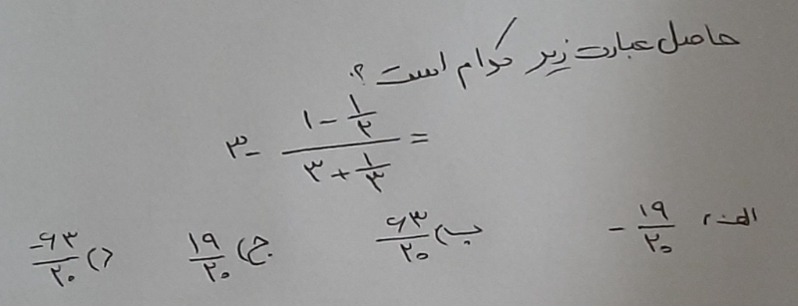 حاصل عبارت زیر کدام است؟
۳ - (۱ - ۱/۲) / (۳ + ۱/۳) =
الف) -۱۹/۲۰ ب) ۶۳/۲۰ ج) ۱۹/۲۰ د) -۶۳/۲۰